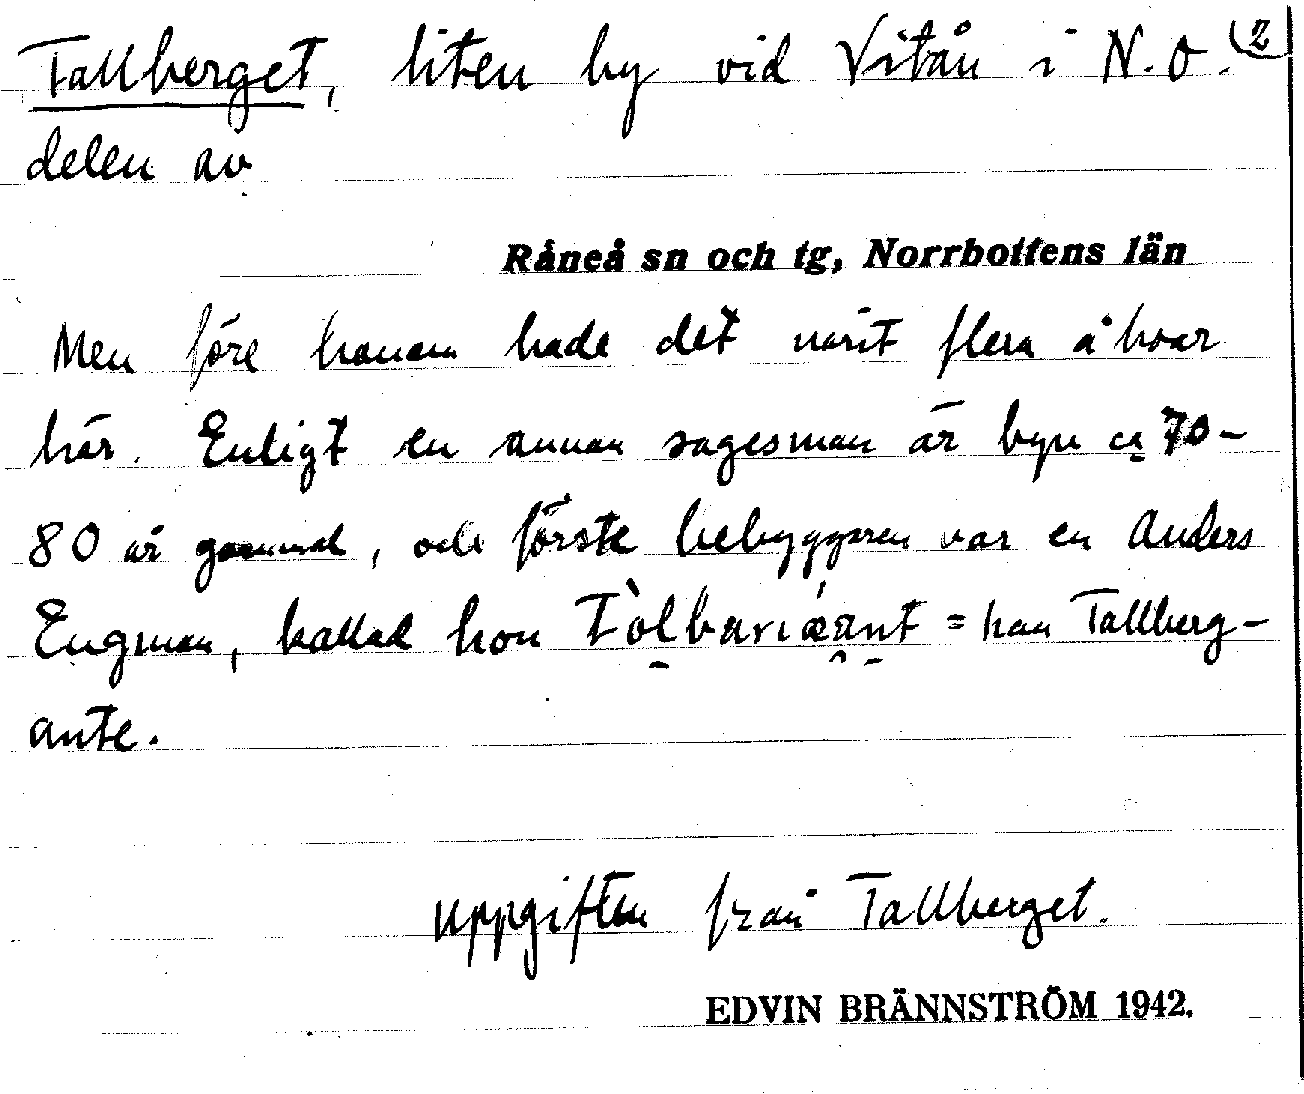 Tallberget, liten by vid Vitån i N.O. (2
delen av
Råneå sn och tg, Norrbottens län
Men före honom hade det varit flera åboar
här. Enligt en annan sagesman är byn ca 70-
80 år gammal, och förste bebyggaren var en Anders
Engman, kallad hon = han Tallberg-
ante.
Uppgiften från Tallberget.
EDVIN BRÄNNSTRÖM 1942.